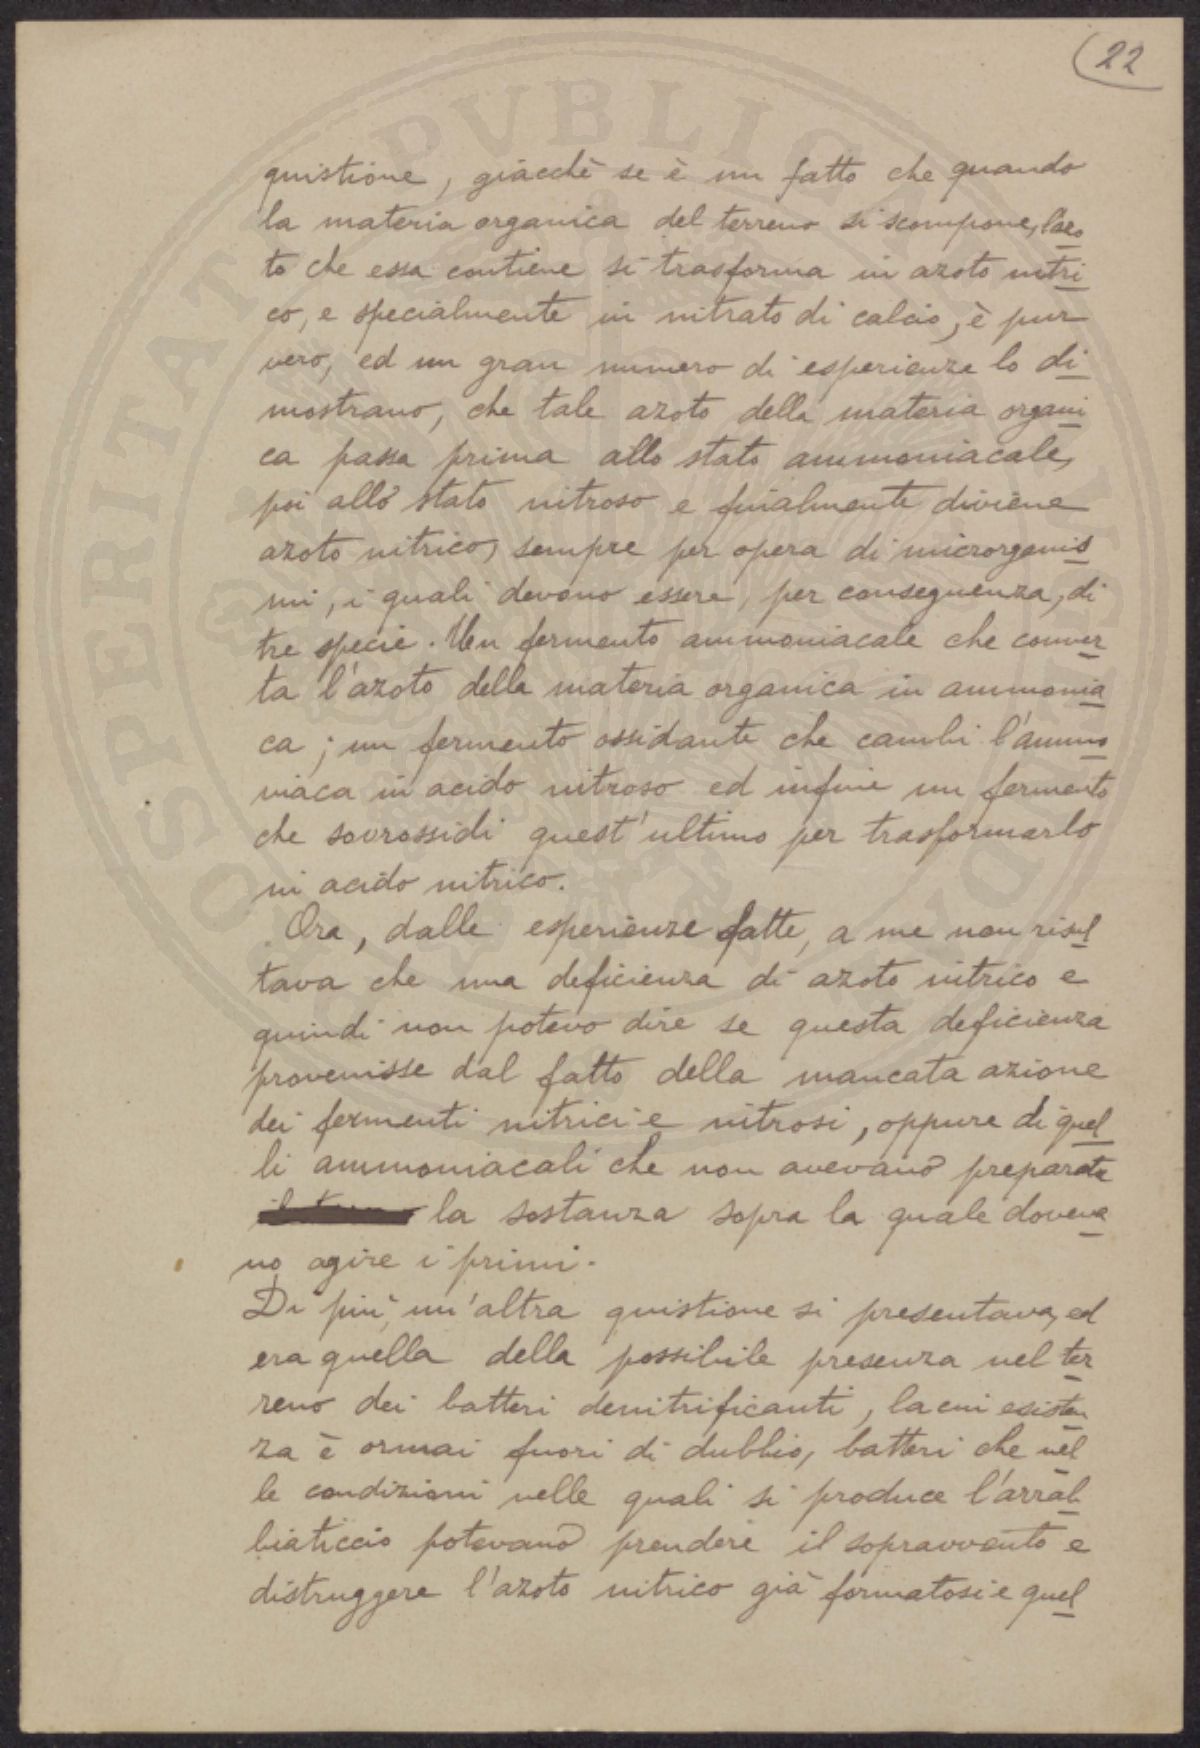 22
quistione, giacchè se è un fatto che quando
la materia organica del terreno si scompone, l'azo
to che essa contiene si trasforma in azoto nitri
co, e specialmente in nitrato di calcio, è pur
vero, ed un gran numero di esperienze lo di
mostrano, che tale azoto della materia organi
ca passa prima allo stato ammoniacale,
poi allo stato nitroso e finalmente diviene
azoto nitrico, sempre per opera di microrganis
mi, i quali devono essere, per conseguenza, di
tre specie. Un fermento ammoniacale che conver
ta l'azoto della materia organica in ammonia
ca; un fermento ossidante che cambi l'ammo
niaca in acido nitroso ed infine un fermento
che sovrossidi quest'ultimo per trasformarlo
in acido nitrico.
Ora, dalle esperienze fatte, a me non risul
tava che una deficienza di azoto nitrico e
quindi non potevo dire se questa deficienza
provenisse dal fatto della mancata azione
dei fermenti nitrici e nitrosi, oppure di quel
li ammoniacali che non avevano preparata
la sostanza sopra la quale doveva
no agire i primi.
Di più, un'altra quistione si presentava, ed
era quella della possibile presenza nel ter
reno dei batteri denitrificanti, la cui esisten
za è ormai fuori di dubbio, batteri che nel
le condizioni nelle quali si produce l'arrab
biaticcio potevano prendere il sopravvento e
distruggere l'azoto nitrico già formatosi e quel
PROSPERITATI PVBLICAE